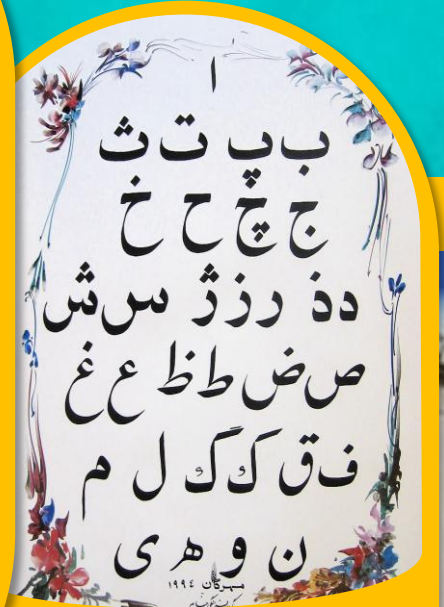 ا
ب پ ت ث
ج چ ح خ
د ذ ر ز ژ س ش
ص ض ط ظ ع غ
ف ق ک گ ل م
ن و ه ی
مهرگان ١٩٩٤